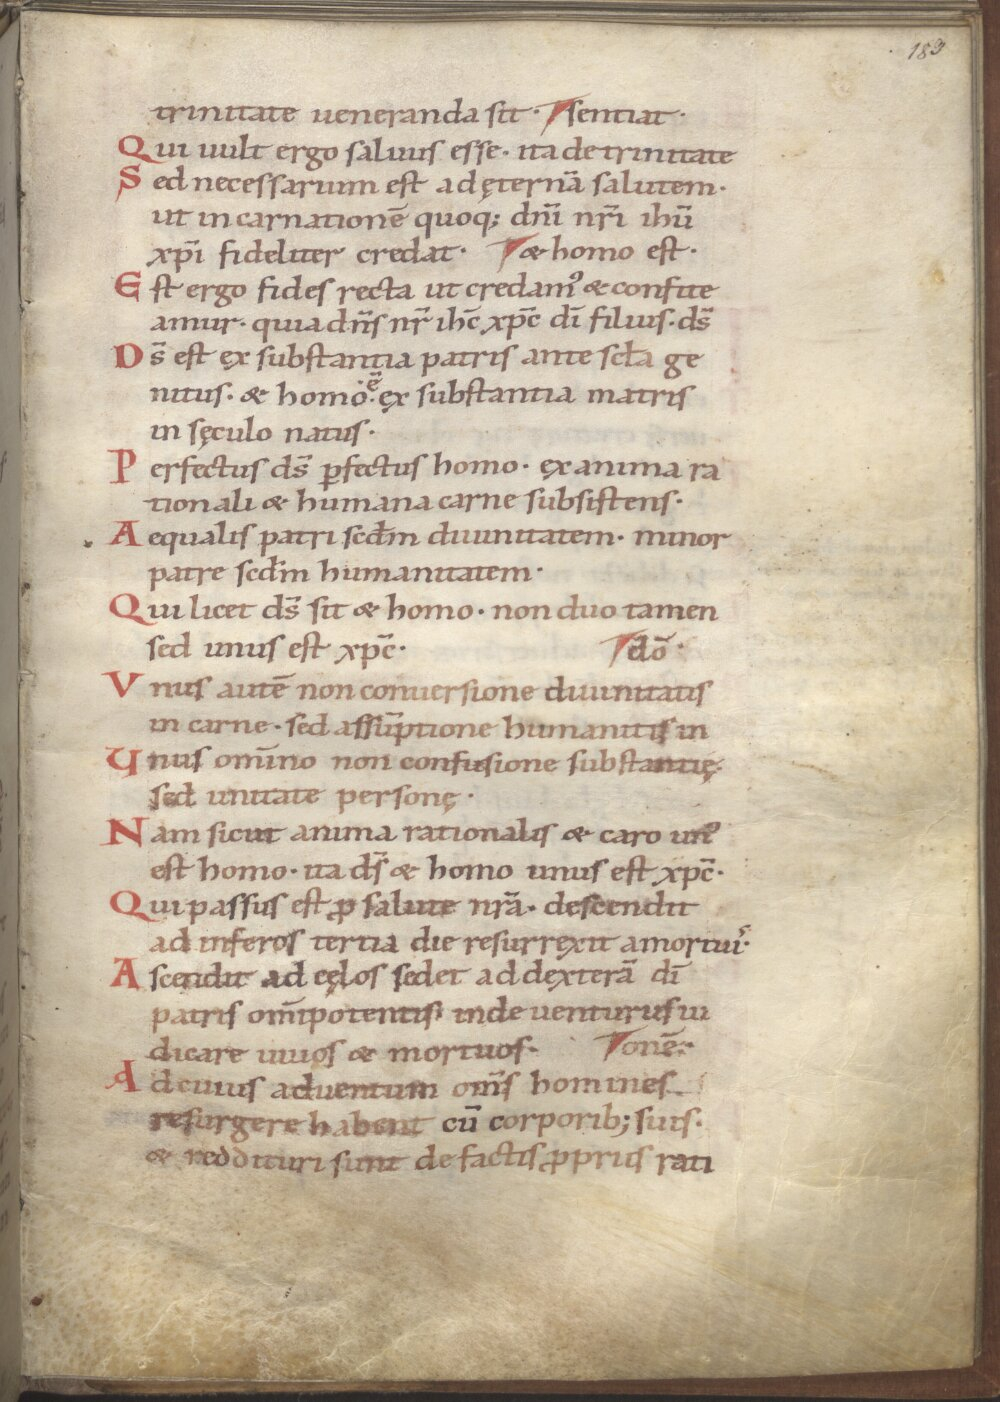 183
trinitate ueneranda sit· sentiat·
Qui uult ergo saluus esse· ita de trinitate
Sed necessarium est ad ęternā salutem·
ut incarnationē quoq; dn̄i nr̄i ihū
xp̄i fideliter credat· & homo est·
Est ergo fides recta ut credam᾽ & confite
amur· quia dn̄s nr̄ ihc̄ xpc̄ dī filius· ds̄
Ds̄ est ęx substantia patris ante scl̄a ge
nitus· & homo· ē ęx substantia matris
in sęculo natus·
Perfectus ds̄ ꝑfectus homo· ęx anima ra
tionali & humana carne subsistens·
Aequalis patri secđm diuinitatem· minor
patre secđm humanitatem·
Qui licet ds̄ sit & homo· non duo tamen
sed unus est xpc̄· dō·
Vnus autē non conuersione diuinitatis
in carne· sed assūptione humanitis in
Vnus om̄ino non confusione substantię·
sed unitate personę·
Nam sicut anima rationalis & caro un᾽
est homo· ita ds̄ & homo unus est xpc̄·
Qui passus est ꝓ salute nr̄a· descendit
ad inferos tertia die resurręxit a mortuis·
Ascendit ad cęlos sedet ad dęxterā dī
patris om̄ipotentis· inde uenturus iu
dicare uiuos & mortuos· onē·
Ad cuius aduentum om̄s homines
resurgere habent cū corporib; suis·
& reddituri sunt de factis ꝓpriis rati